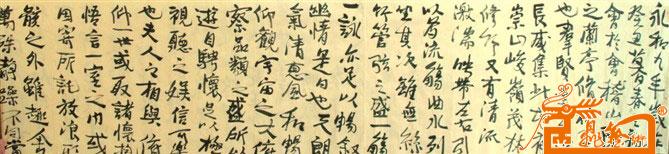 永和九年歲在
癸丑暮春
會于會稽山
之蘭亭脩
也羣賢
長咸集此
崇山峻嶺茂林
脩竹又有清流
激湍暎帶左右引
以為流觴曲水列
坐其次雖無絲
竹管弦之盛一觴
一詠亦足以暢敘
幽情是日也天朗
氣清惠風和暢
仰觀宇宙之大俯
察品類之盛所以
遊目騁懷足以極
視聽之娛信可樂
也夫人之相與俯
仰一世或取諸懷抱
悟言一室之內或
因寄所託放浪形
骸之外雖趣舍
萬殊靜躁不同當